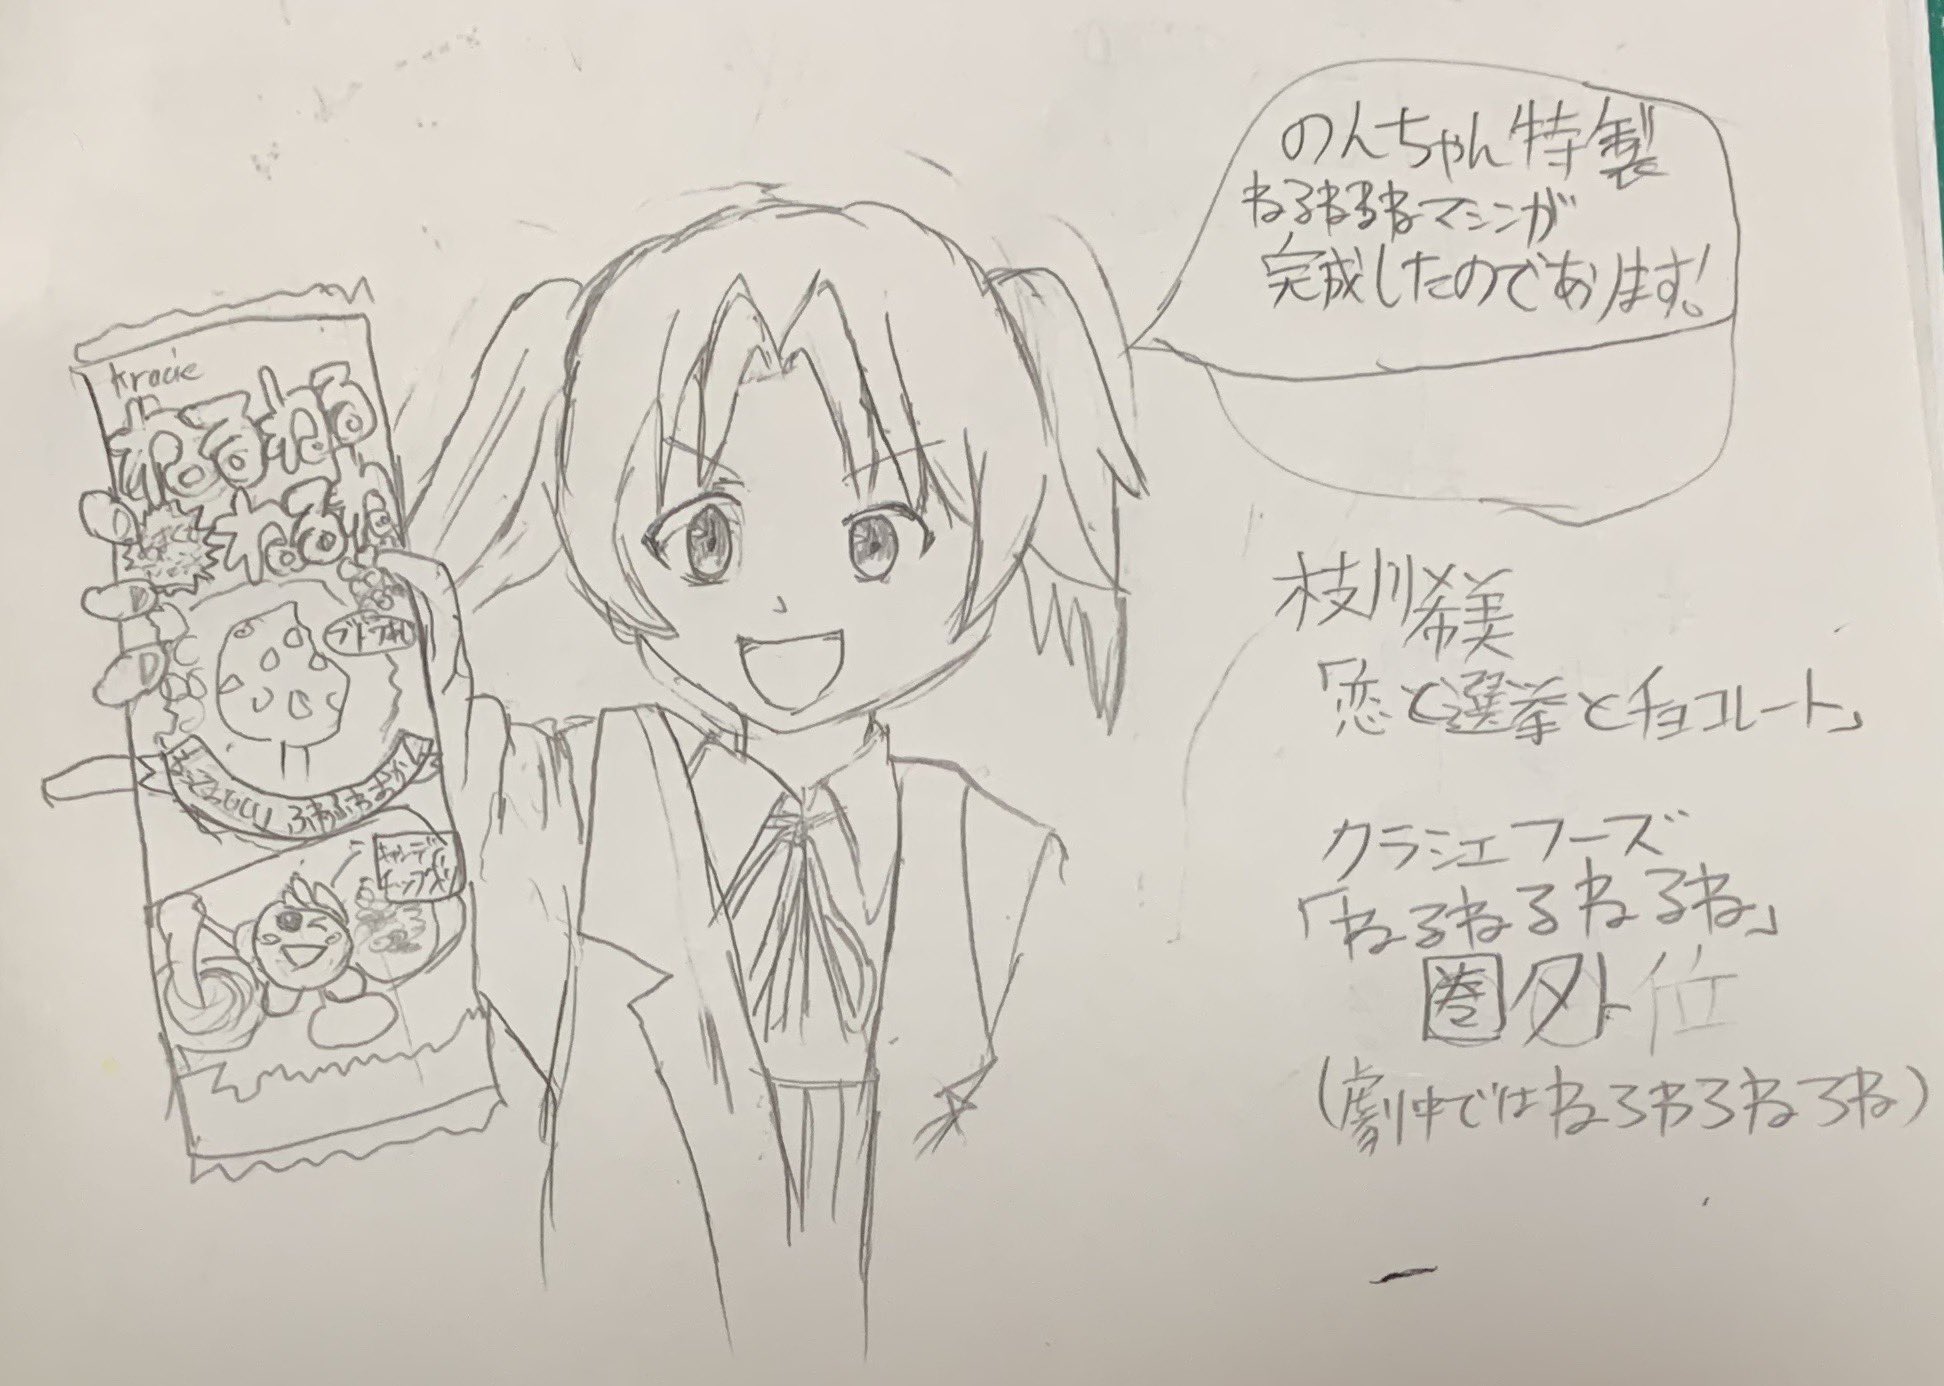 のんちゃん特製
ねるねるねマシンが
完成したのであります!
Kracie
ねるねる
ねるね
ブドウ味
ふわふわおかし
キャンディ
チップ入り
枝川希美
「恋と選挙とチョコレート」
クラシエフーズ
「ねるねるねるね」
圏外位
(劇中ではねろねろねろね)